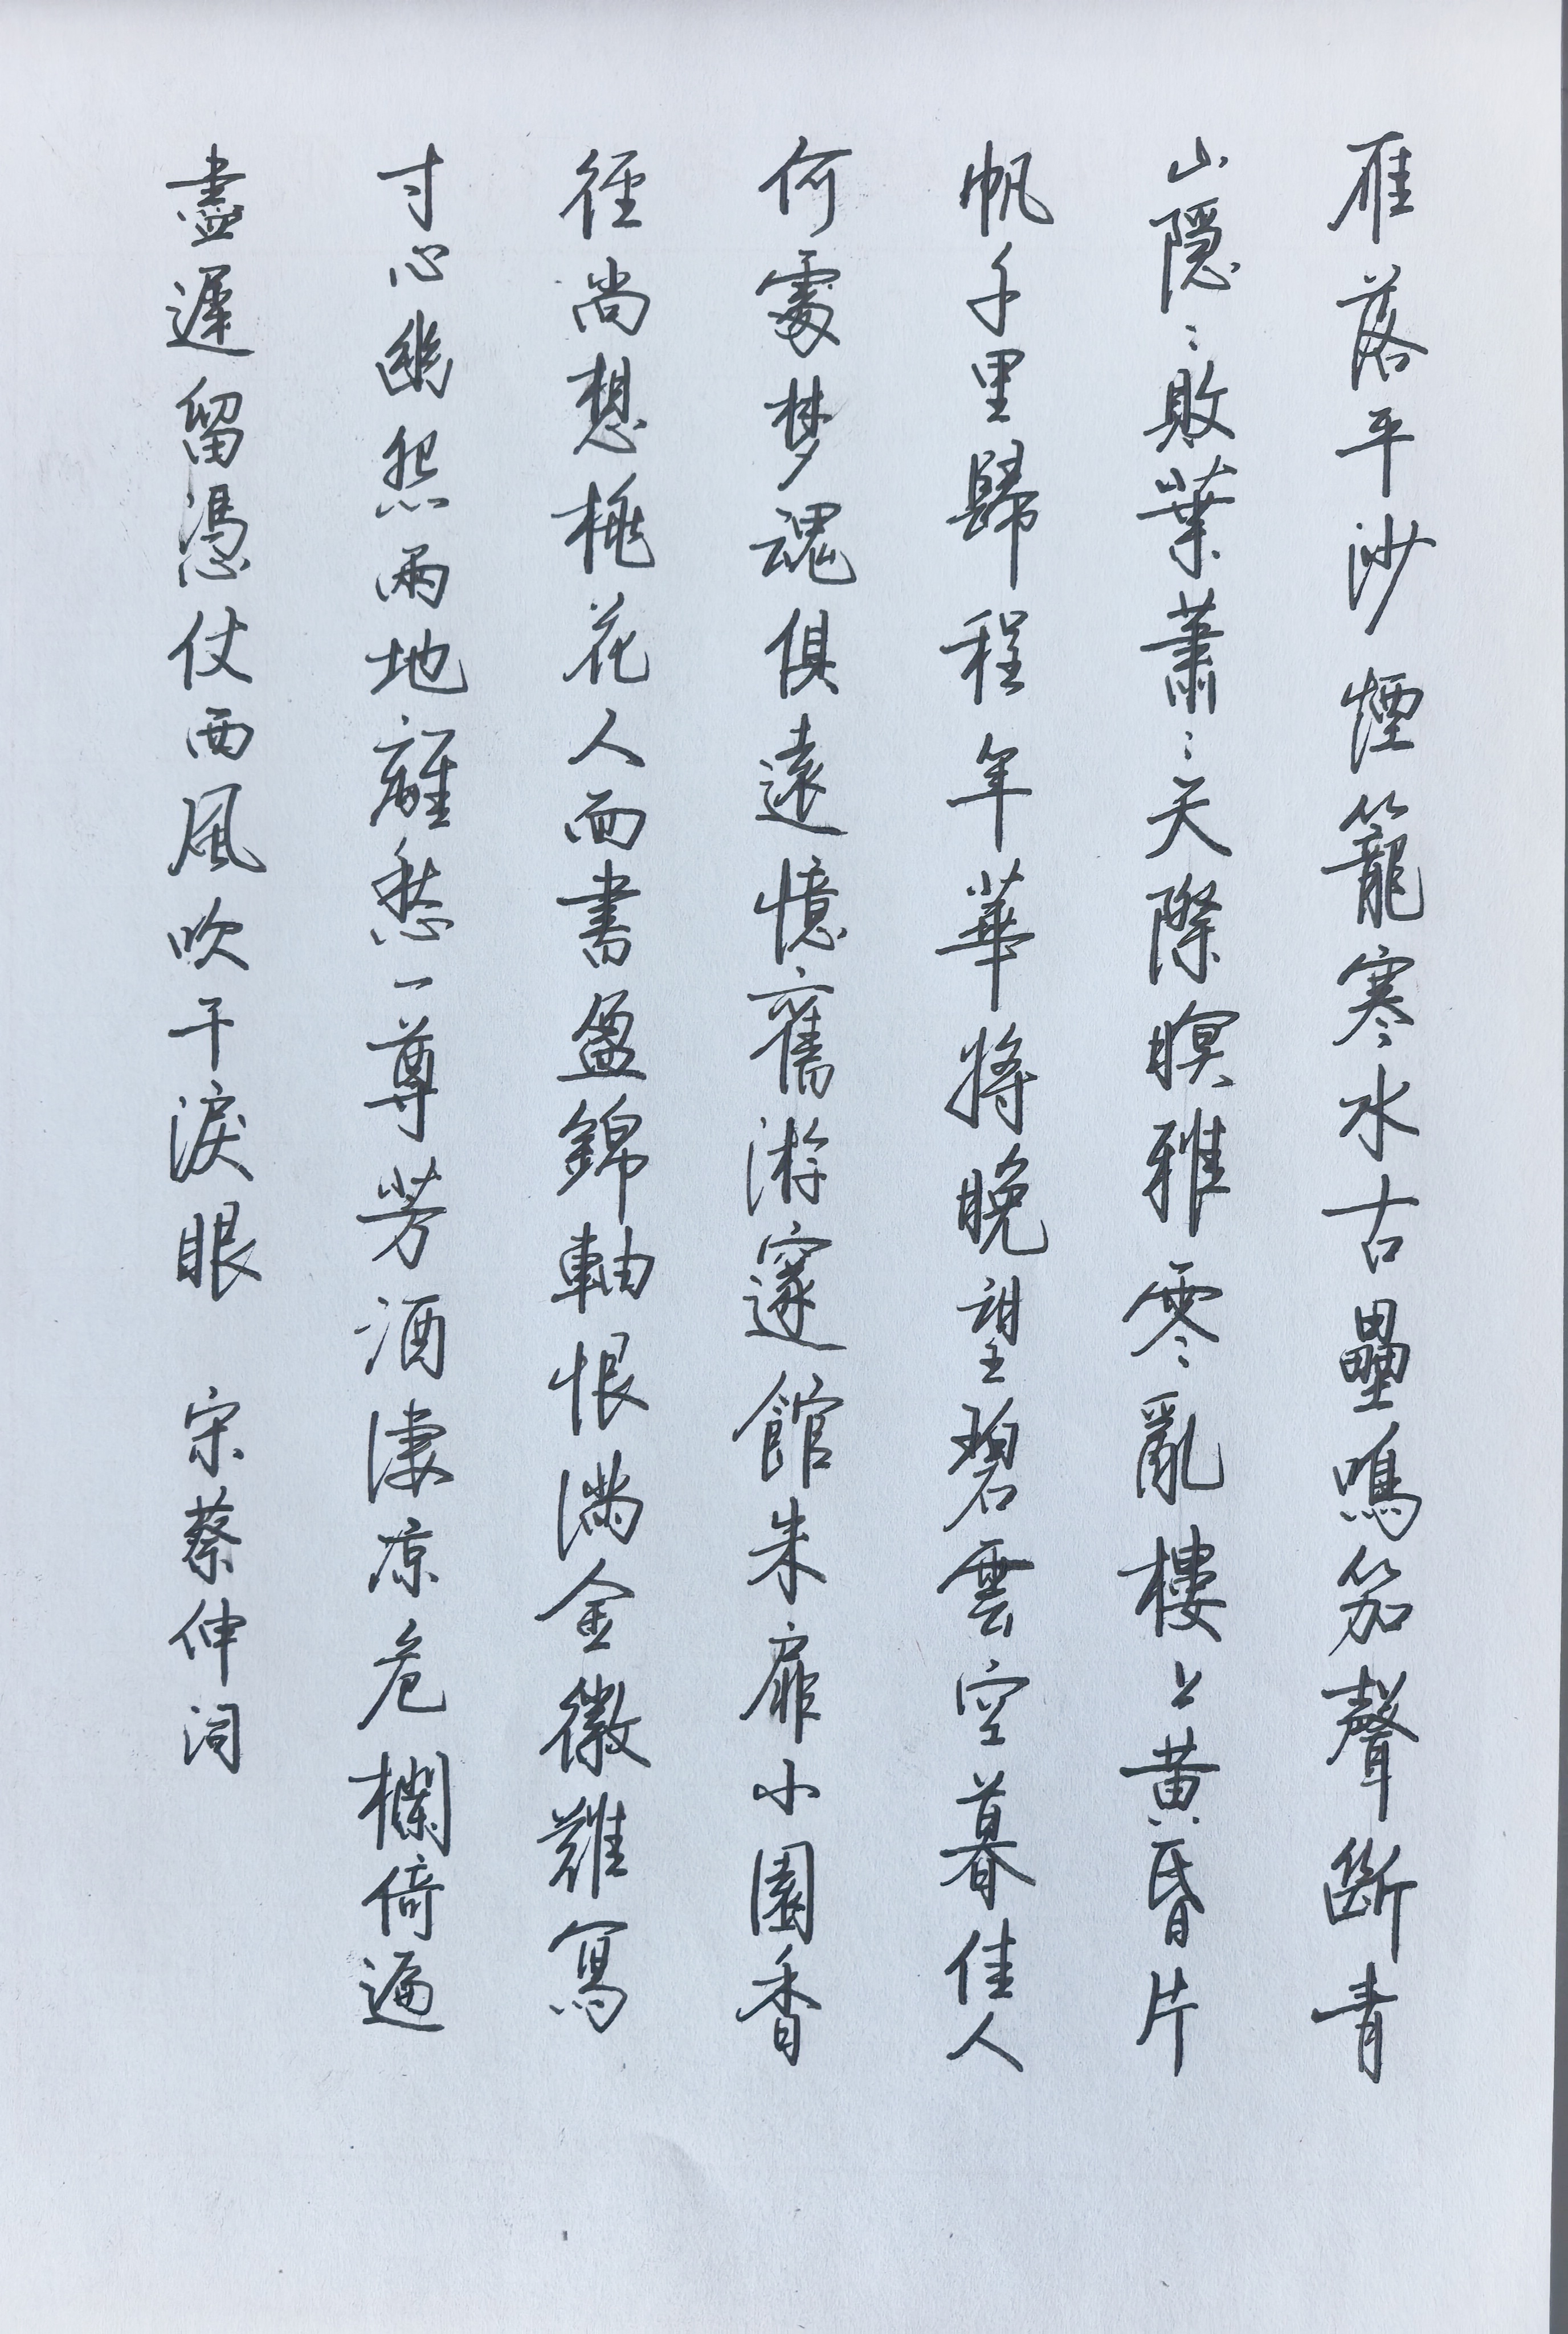 雁落平沙煙籠寒水古壘鳴笳聲斷青
山隱：敗葉蕭：天際暝雅零亂樓上黄昏片
帆千里歸程年華將晚望碧雲空暮佳人
何處梦魂俱遠憶舊游邃館朱扉小園香
徑尚想桃花人面書盈錦軸恨滿金徽難寫
寸心幽怨兩地離愁一尊芳酒淒凉危欄倚遍
盡遲留憑仗西風吹干淚眼 宋蔡伸词